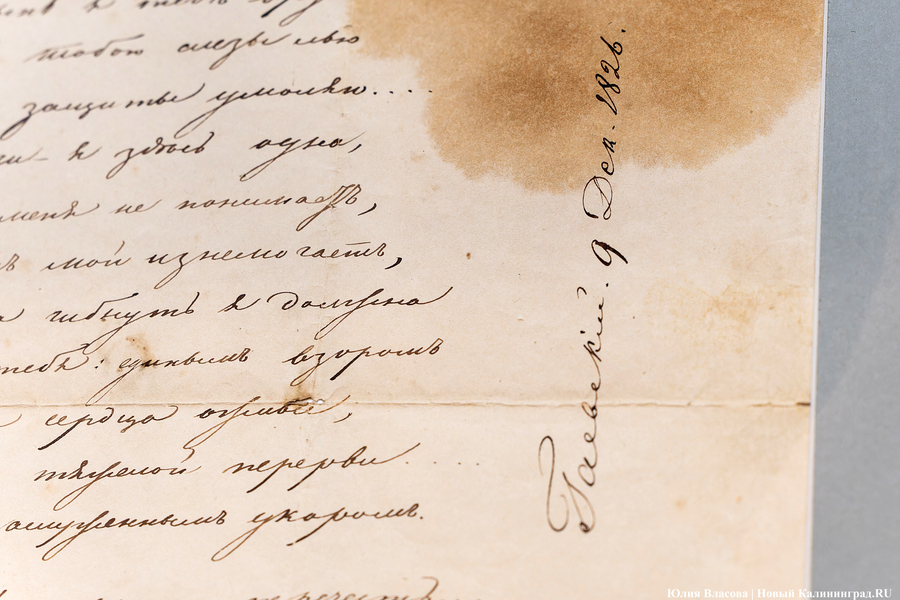 тобою слезы лью
защиты умоляю....
я здѣсь одна,
меня не понимаетъ,
мой изнемогаетъ,
гибнуть я должна
тебя: единымъ взоромъ
сердца оживи,
тяжелой перерви....
укоромъ.
перечесть
Гаевскій. 9 Дек. 1826.
Юлия Власова | Новый Калининград.RU